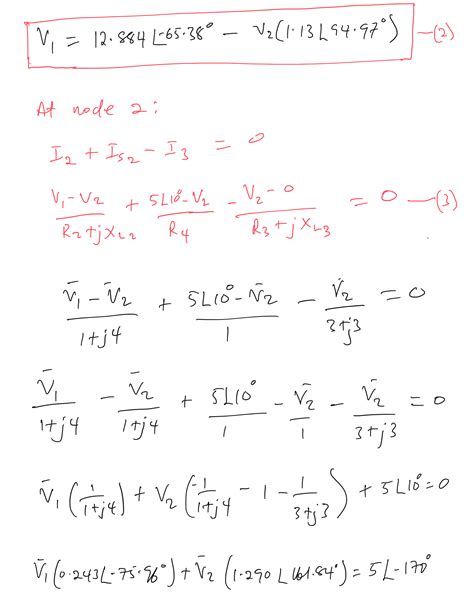 V₁ = 12.884∠-65.38° - V₂(1.13∠94.97°) —(2)
At node 2:
I₂ + I_S2 - I₃ = 0
(V₁-V₂)/(R₂+jX_L2) + (5∠10°-V₂)/R₄ - (V₂-0)/(R₃+jX_L3) = 0 —(3)
(V̄₁-V̄₂)/(1+j4) + (5∠10°-V̄₂)/1 - V̄₂/(3+j3) = 0
V̄₁/(1+j4) - V̄₂/(1+j4) + 5∠10°/1 - V̄₂/1 - V̄₂/(3+j3) = 0
V̄₁(1/(1+j4)) + V₂(-1/(1+j4) - 1 - 1/(3+j3)) + 5∠10° = 0
V̄₁(0.243∠-75.96°) + V̄₂(1.290∠161.84°) = 5∠-170°